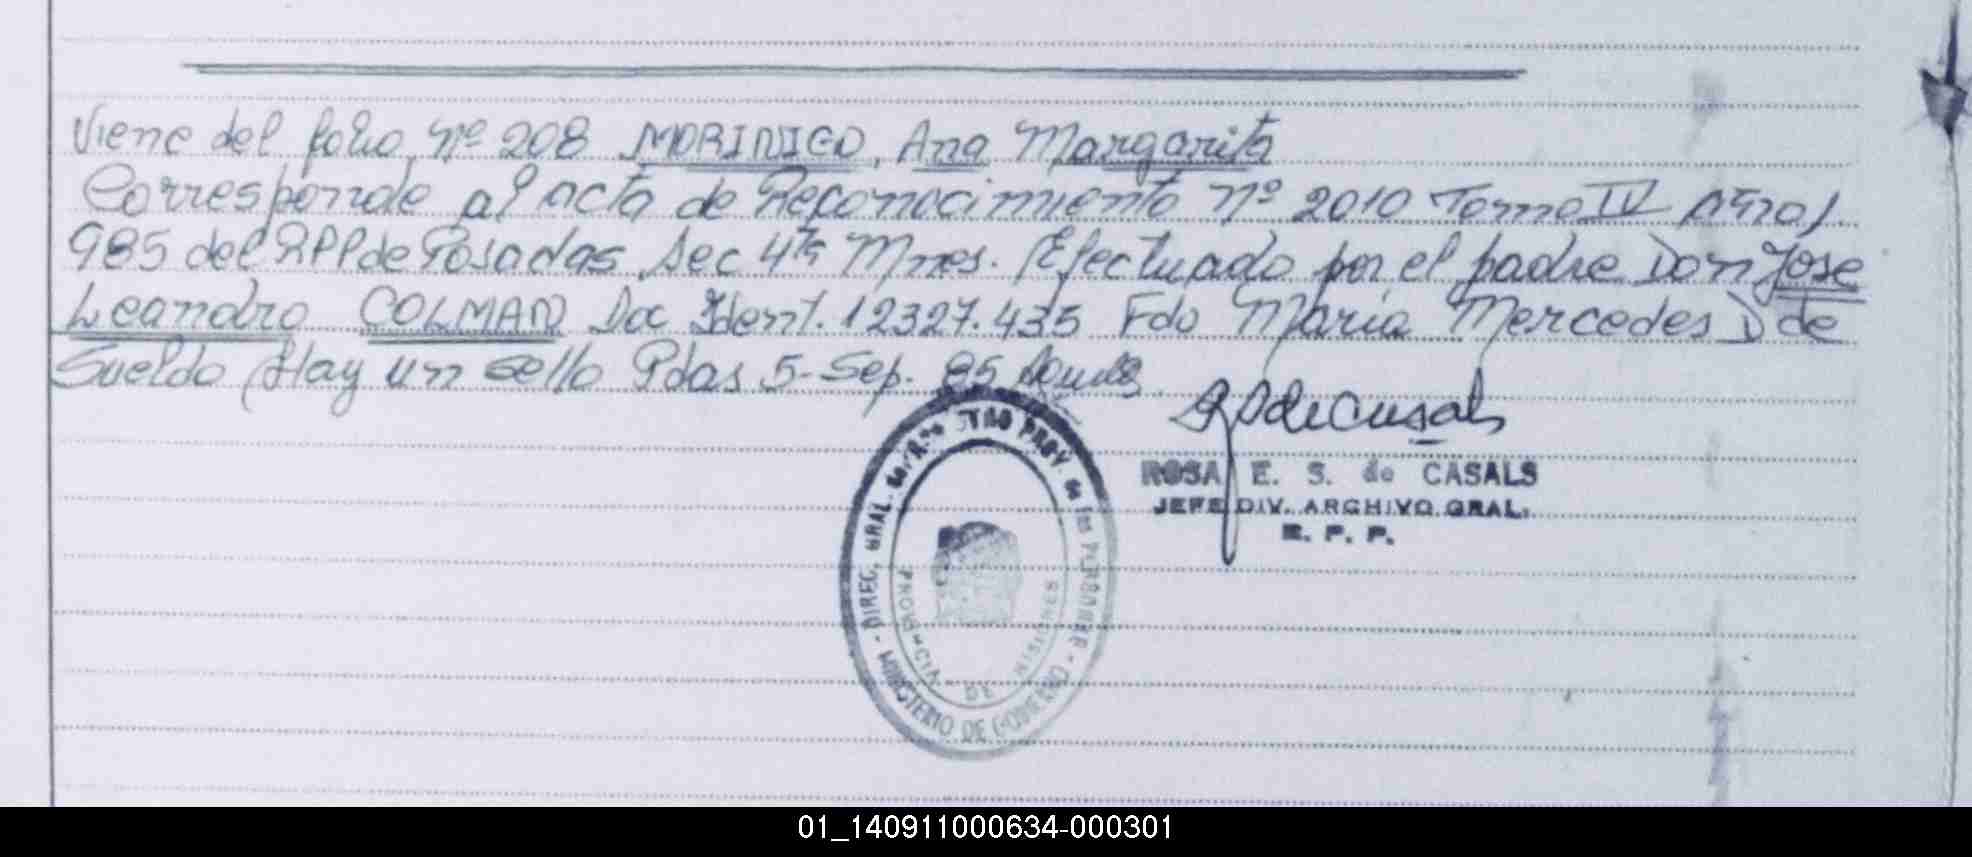 Viene del folio, Nº 208 MORINIGO, Ana Margarita
Corresponde al acta de Reconocimiento Nº 2010 Tomo IV Año 1
985 del RPP de Posadas Sec 4ta Mnes. Efectuado por el padre Don Jose
Leandro COLMAN Doc Ident. 12327.435 Fdo Maria Mercedes D de
Sueldo Hay un sello Pdas 5-Sep. 85
ROSA E. S. de CASALS
JEFE DIV. ARCHIVO GRAL.
R. P. P.
DIREC. GRAL. del PROV de las PERSONAS
MINISTERIO DE GOBIERNO
PROVINCIA DE MISIONES
01_140911000634-000301